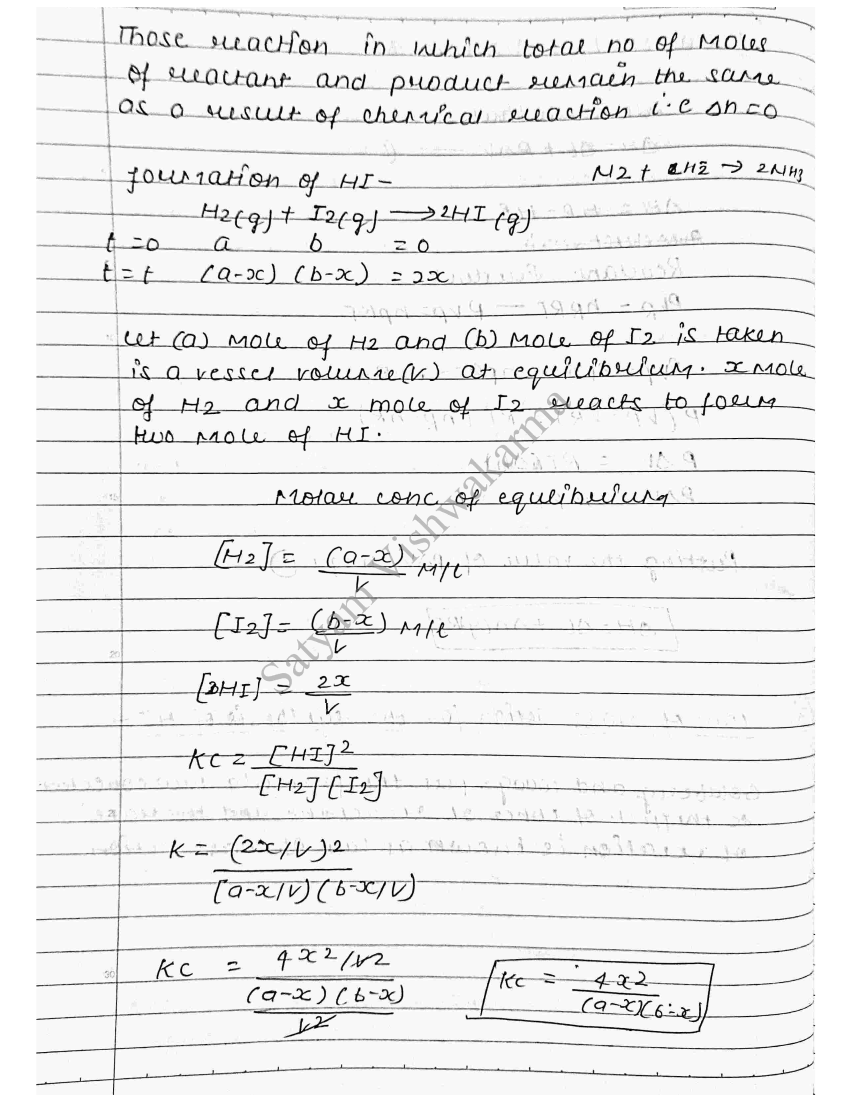 Those reaction in which total no of moles
of reactant and product remain the same
as a result of chemical reaction i.e Δn=0
N2 + H2 → 2NH3
formation of HI-
H2(g) + I2(g) → 2HI (g)
t=0 a b = 0
t=t (a-x) (b-x) = 2x
Let (a) mole of H2 and (b) mole of I2 is taken
is a vessel volume (V) at equilibrium. x mole
of H2 and x mole of I2 reacts to form
two mole of HI.
Molar conc of equilibrium
[H2] = (a-x)/V M/L
[I2] = (b-x)/V M/L
[HI] = 2x/V
KC = [HI]2/[H2][I2]
K = (2x/V)2/(a-x/V)(b-x/V)
KC = 4x2/V2/(a-x)(b-x)/V2
KC = 4x2/(a-x)(b-x)
Satyam Vishwakarma
30